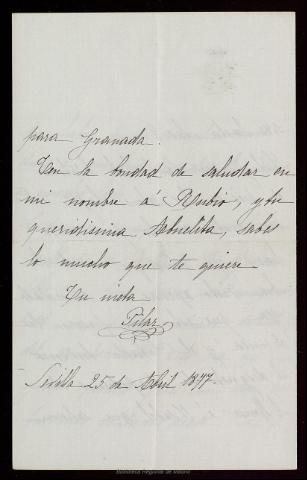 para Granada.
Ten la bondad de saludar en
mi nombre á Rubio, y tu
queridisima Abuelita, sabes
lo mucho que te quiere
Tu nieta
Pilar
Sevilla 25 de Abril 1877.
Biblioteca Regional de Madrid